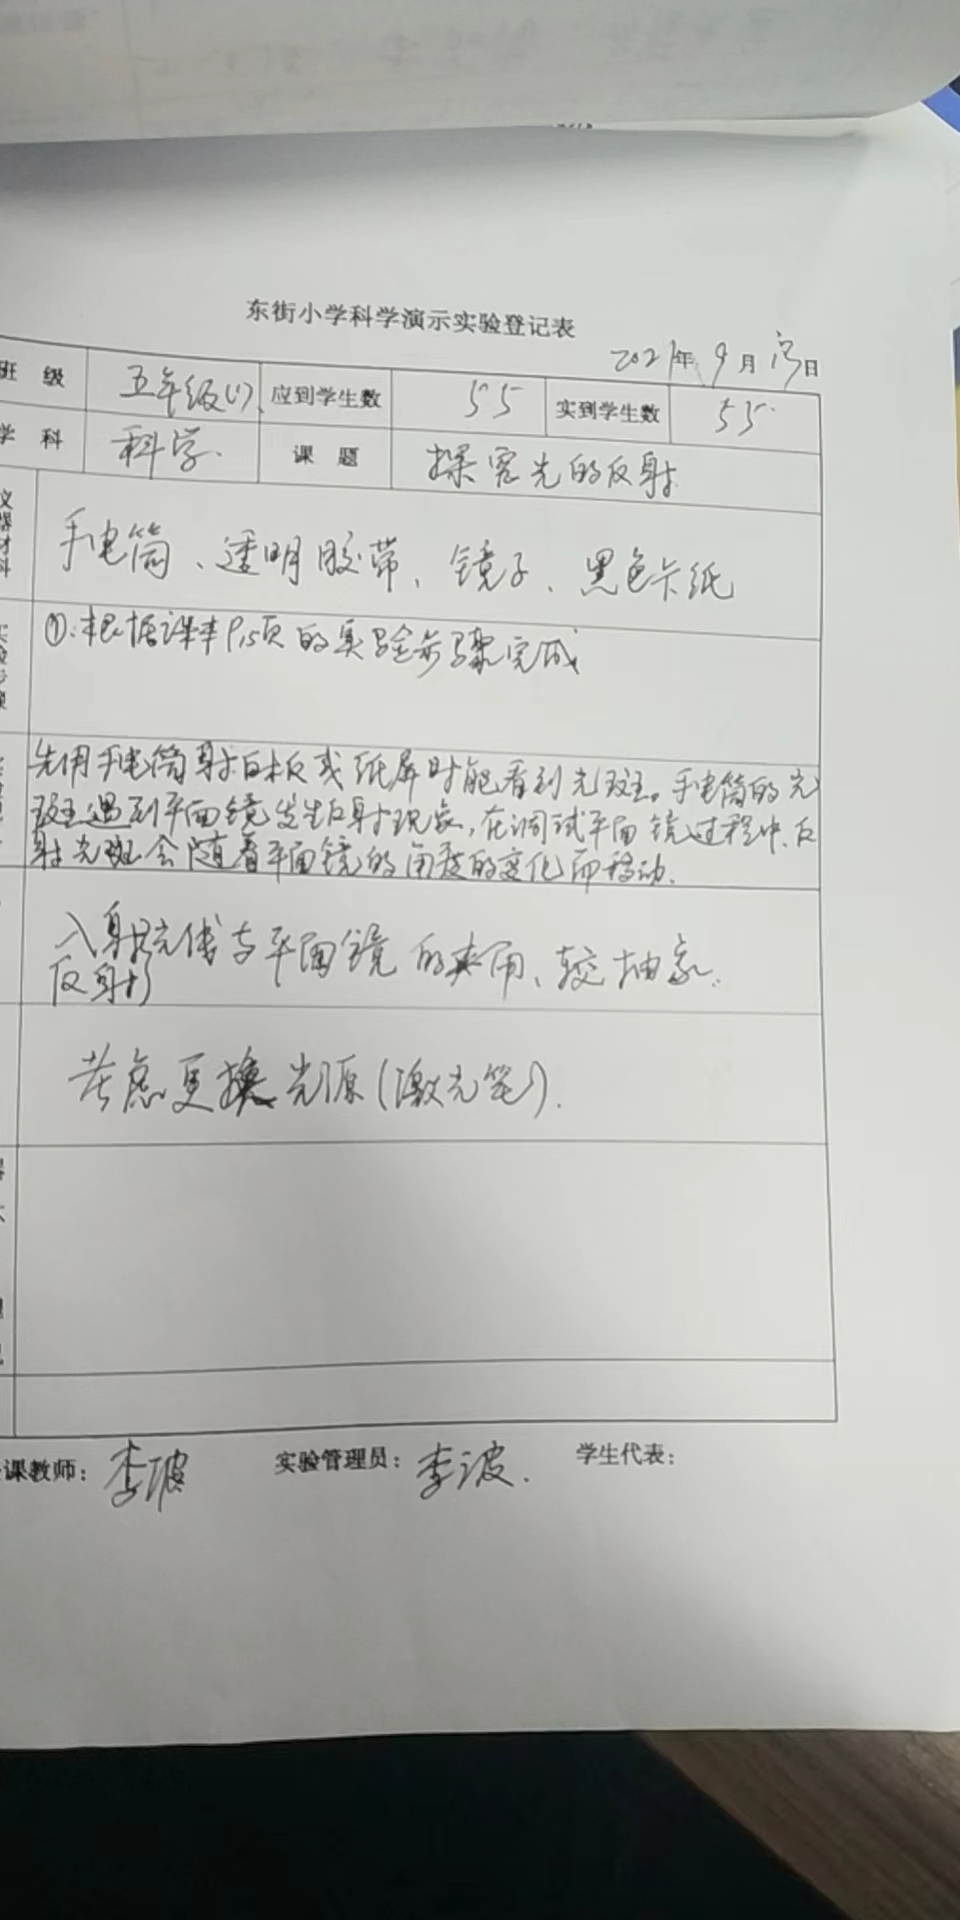 东街小学科学演示实验登记表
2021年 9月 日
班 级 五年级(1) 应到学生数 55 实到学生数 55
学 科 科学 课 题 探密光的反射
仪器材料 手电筒、透明胶带、镜子、黑色卡纸
实验步骤 ①.根据课本P15页的实验步骤完成
先用手电筒射白板或纸屏时能看到光斑。手电筒的光
斑遇到平面镜发生反射现象,在调试平面镜过程中,反
射光斑会随着平面镜的角度的变化而移动.
入射光线与平面镜的夹角、较抽象.
反射
考虑更换光源(激光笔).
课教师: 李波 实验管理员: 李波. 学生代表: